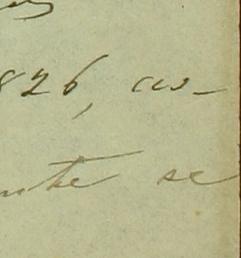 826, as-
nte se